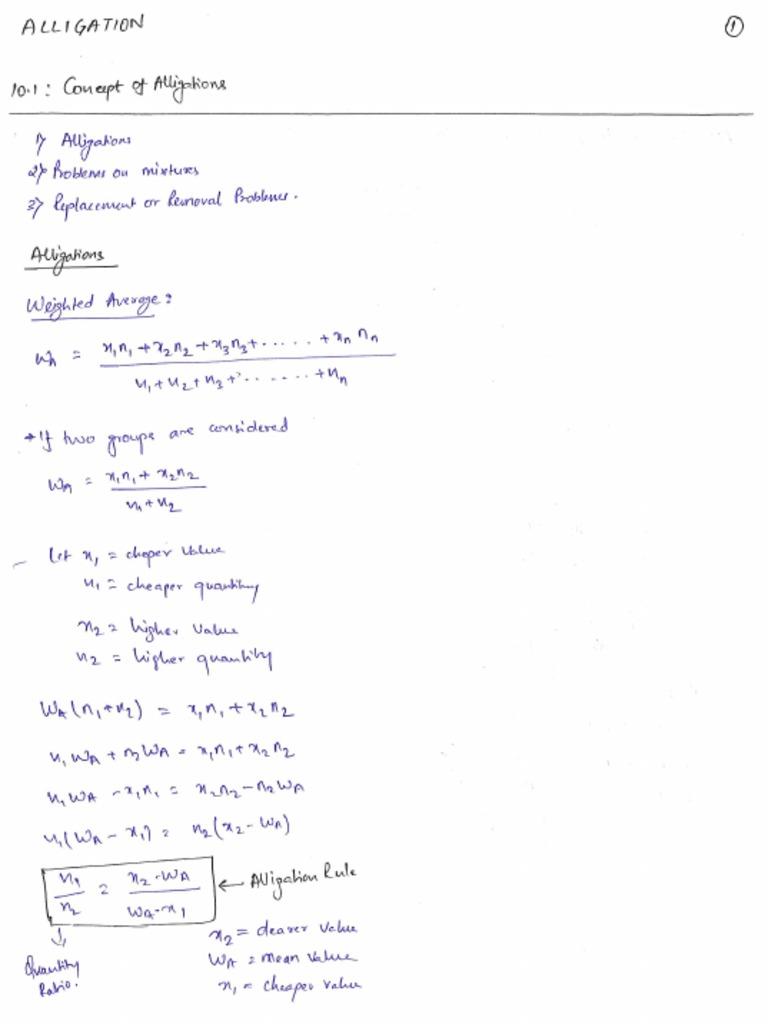 ALLIGATION
①
10.1: Concept of Alligations
1) Alligations
2) Problems on mixtures
3) Replacement or Removal Problems.
Alligations
Weighted Average:
WA = (x₁n₁ + x₂n₂ + x₃n₃ + ...... + xₙnₙ) / (n₁ + n₂ + n₃ + ....... + nₙ)
→ If two groups are considered
WA = (x₁n₁ + x₂n₂) / (n₁ + n₂)
Let x₁ = cheper value
n₁ = cheaper quantity
x₂ = higher value
n₂ = higher quantity
WA (n₁ + n₂) = x₁n₁ + x₂n₂
n₁WA + n₂WA = x₁n₁ + x₂n₂
n₁WA - x₁n₁ = x₂n₂ - n₂WA
n₁(WA - x₁) = n₂(x₂ - WA)
n₁/n₂ = (x₂ - WA) / (WA - x₁) ← Alligation Rule
↓
Quantity Ratio.
x₂ = dearer value
WA = mean value
x₁ = cheaper value